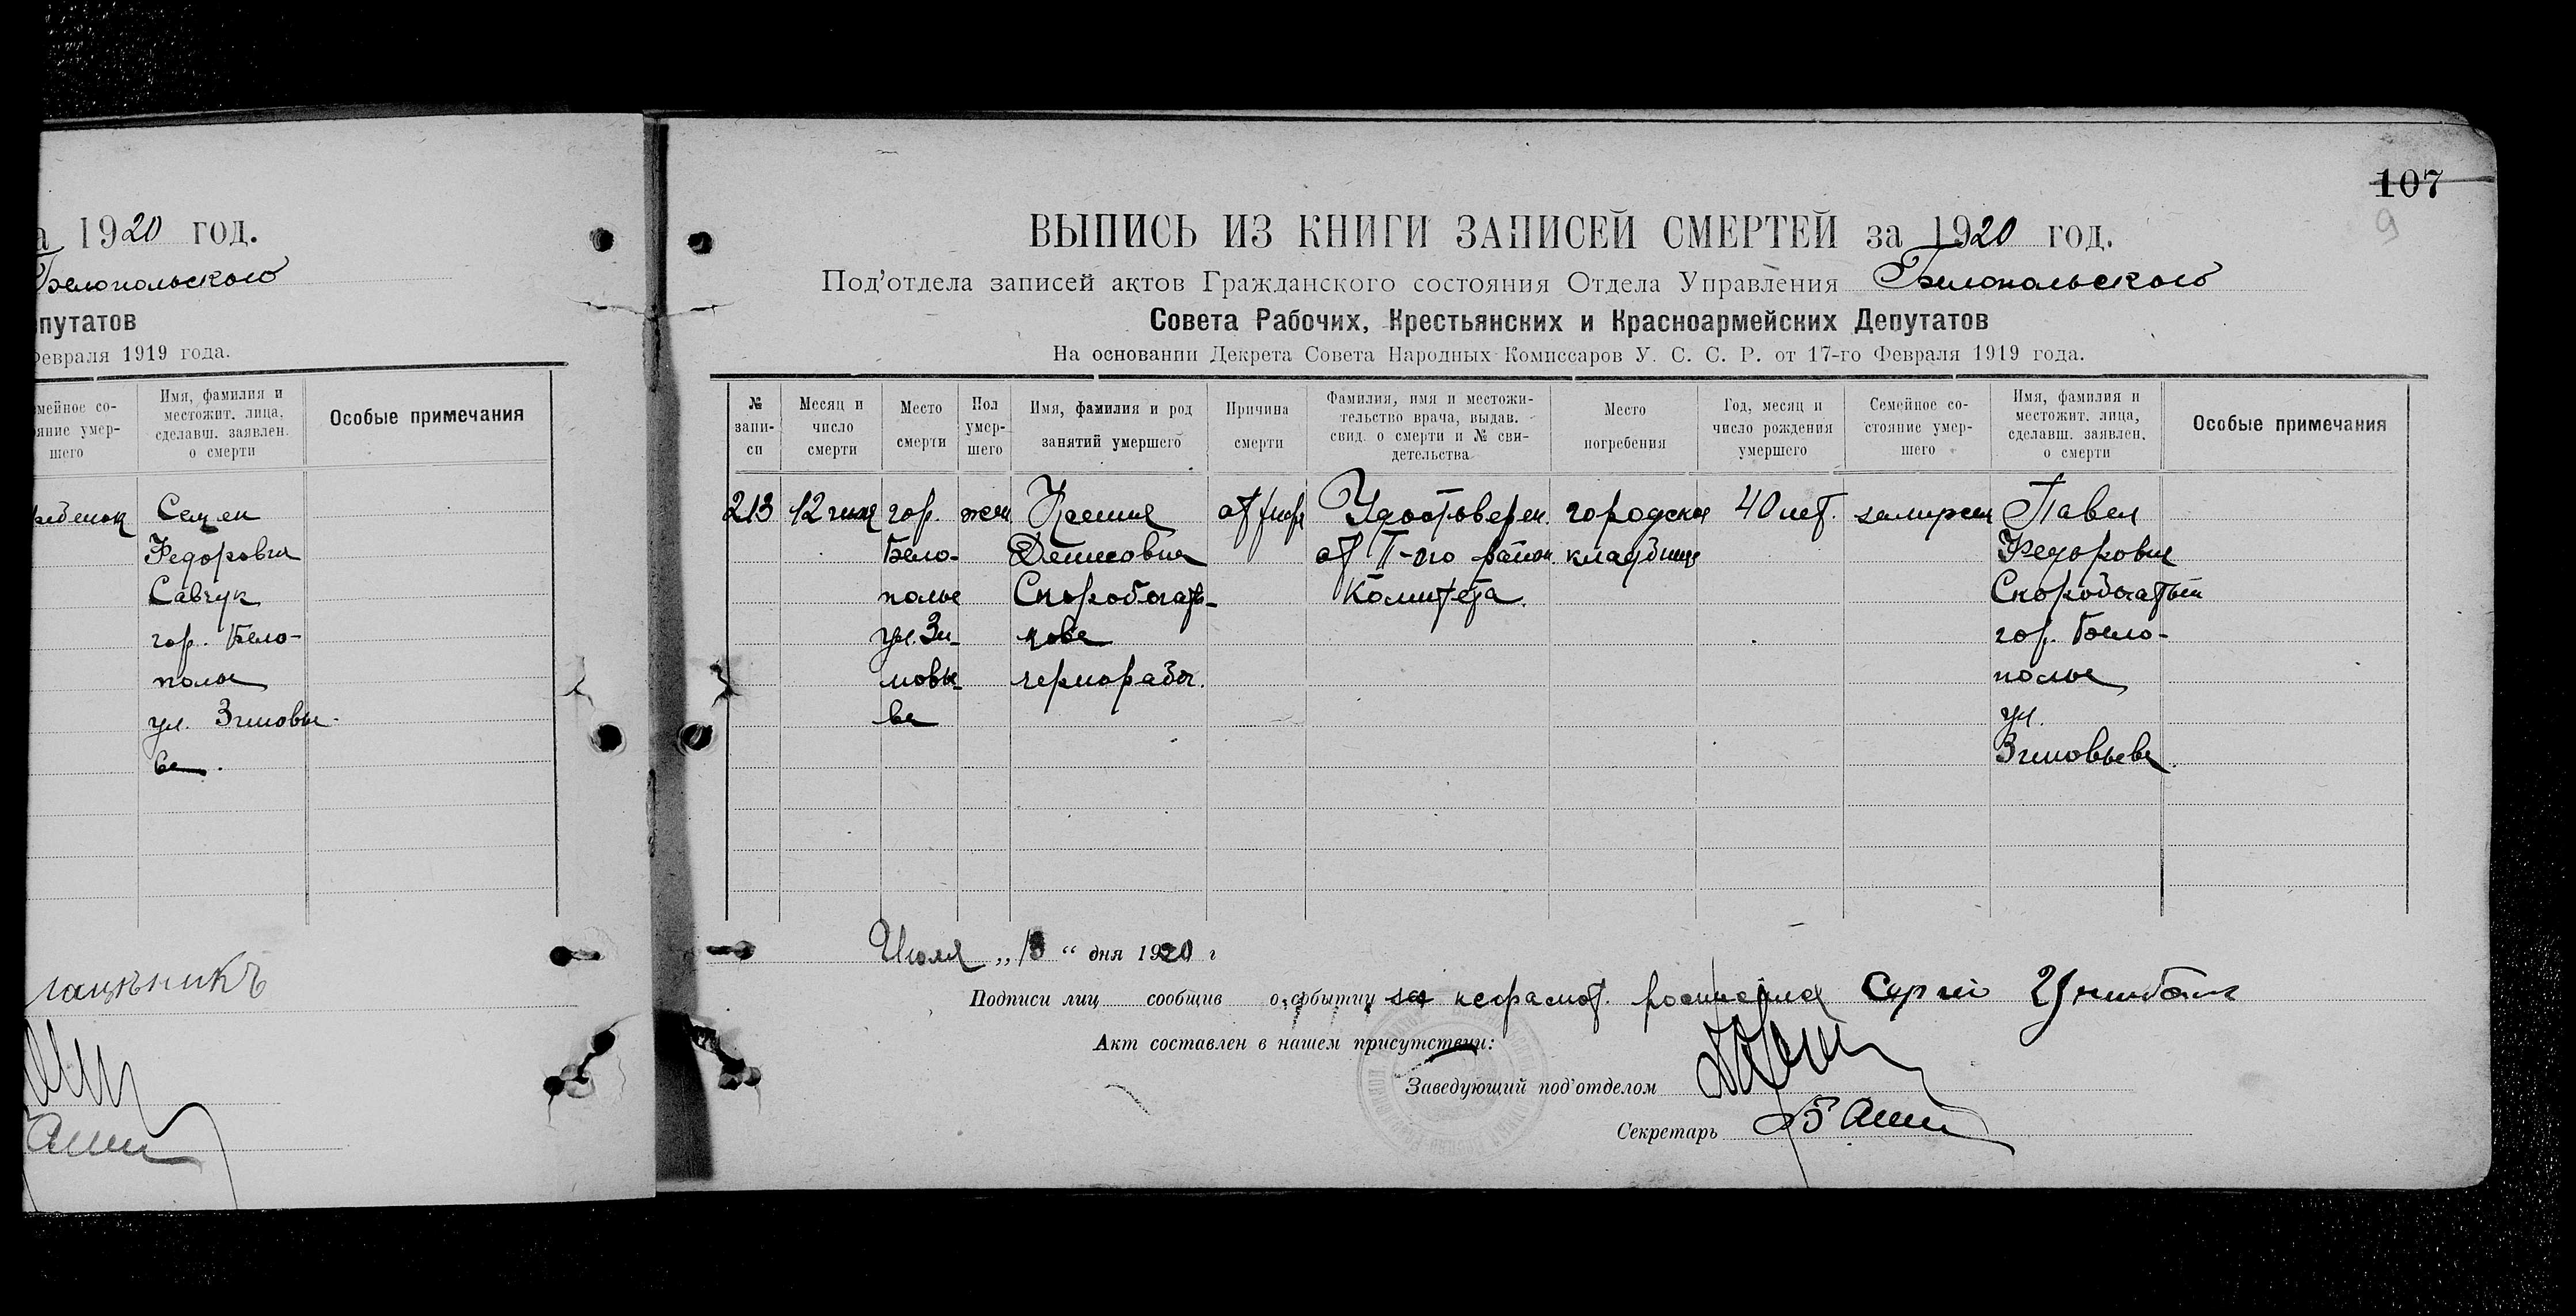 1920 год.
Белопольского
путатов
Февраля 1919 года.
мейное со-
ояние умер-
шего
Имя, фамилия и
местожит. лица,
сделавш. заявлен.
о смерти
Особые примечания
ребенок
Семен
Федорович
Савчук
гор. Бело-
полье
ул. Зиновье-
ва.
107
9
ВЫПИСЬ ИЗ КНИГИ ЗАПИСЕЙ СМЕРТЕЙ за 1920 год.
Под'отдела записей актов Гражданского состояния Отдела Управления Белопольского
Совета Рабочих, Крестьянских и Красноармейских Депутатов
На основании Декрета Совета Народных Комиссаров У. С. С. Р. от 17-го Февраля 1919 года.
№
запи-
си
Месяц и
число
смерти
Место
смерти
Пол
умер-
шего
Имя, фамилия и род
занятий умершего
Причина
смерти
Фамилия, имя и местожи-
тельство врача, выдав.
свид. о смерти и № сви-
детельства
Место
погребения
Год, месяц и
число рождения
умершего
Семейное со-
стояние умер-
шего
Имя, фамилия и
местожит. лица,
сделавш. заявлен.
о смерти
Особые примечания
213
12 июля
гор.
Бело-
полье
ул. Зи-
новье-
ва
жен.
Ксения
Денисовна
Скоробогать-
кова
чернорабоч.
от тифа
Удостоверен.
от II-го район.
Комитета.
городское
кладбище
40 лет.
замужем
Павел
Федорович
Скоробогатый
гор. Бело-
полье
ул.
Зиновьева
Июля „13“ дня 1920 г
Подписи лиц сообщив о событии за неграмот. росписался Сергей
Акт составлен в нашем присутствии:
Заведующий под'отделом
Секретарь